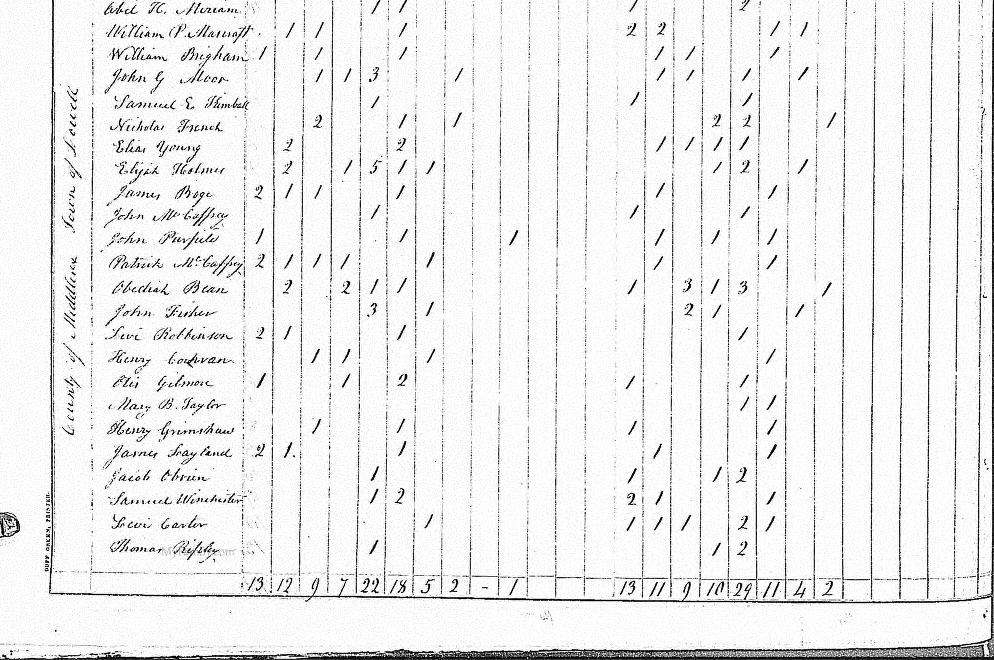 County of Middlesex Town of Lowell
Abel H. Miriam 1 1 1 2
William P. Marcroft 1 1 1 2 2 1 1
William Brigham 1 1 1 1 1 1
John G Moor 1 1 3 1 1 1 1 1
Samuel E Kimball 1 1 1
Nicholas French 2 1 1 2 2 1
Elias Young 2 2 1 1 1 1
Elijah Holmes 2 1 5 1 1 1 2 1
James Page 2 1 1 1 1 1
John McCaffrey 1 1 1
John 1 1 1 1 1 1
Patrick McCaffrey 2 1 1 1 1 1 1
Obediah Bean 2 2 1 1 1 3 1 3 1
John Fisher 3 1 2 1 1
Levi Robbinson 2 1 1 1
Henry Cochran 1 1 1 1
Otis Gilmore 1 1 2 1 1
Mary B. Taylor 1 1
Henry Grimshaw 1 1 1 1
James Layland 2 1. 1 1 1
Jacob Obrien 1 1 1 2
Samuel Winchester 1 2 2 1 1
Lewis Carter 1 1 1 1 2 1
Thomas Ripley 1 1 2
13 12 9 7 22 18 5 2 - 1 13 11 9 10 29 11 4 2
DUFF GREEN, PRINTER.